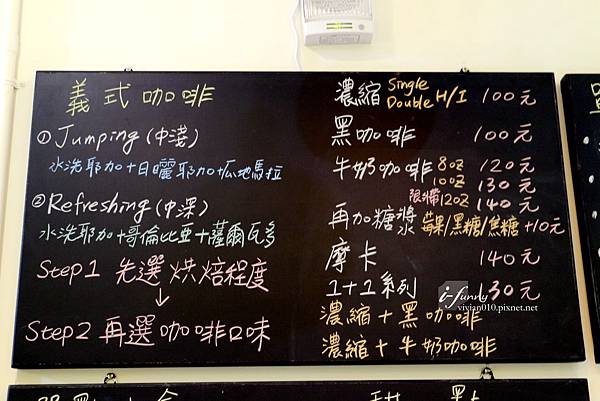 義式咖啡
①Jumping(中淺)
水洗耶加+日曬耶加+瓜地馬拉
②Refreshing(中深)
水洗耶加+哥倫比亞+薩爾瓦多
Step1 先選烘焙程度
↓
Step2 再選咖啡口味
濃縮 Single Double H/I 100元
黑咖啡 100元
牛奶咖啡 8oz 120元
10oz 130元
限帶12oz 140元
再加糖漿 莓果/黑糖/焦糖 +10元
摩卡 140元
1+1系列 130元
濃縮+黑咖啡
濃縮+牛奶咖啡
i-funny
vivian010.pixnet.net